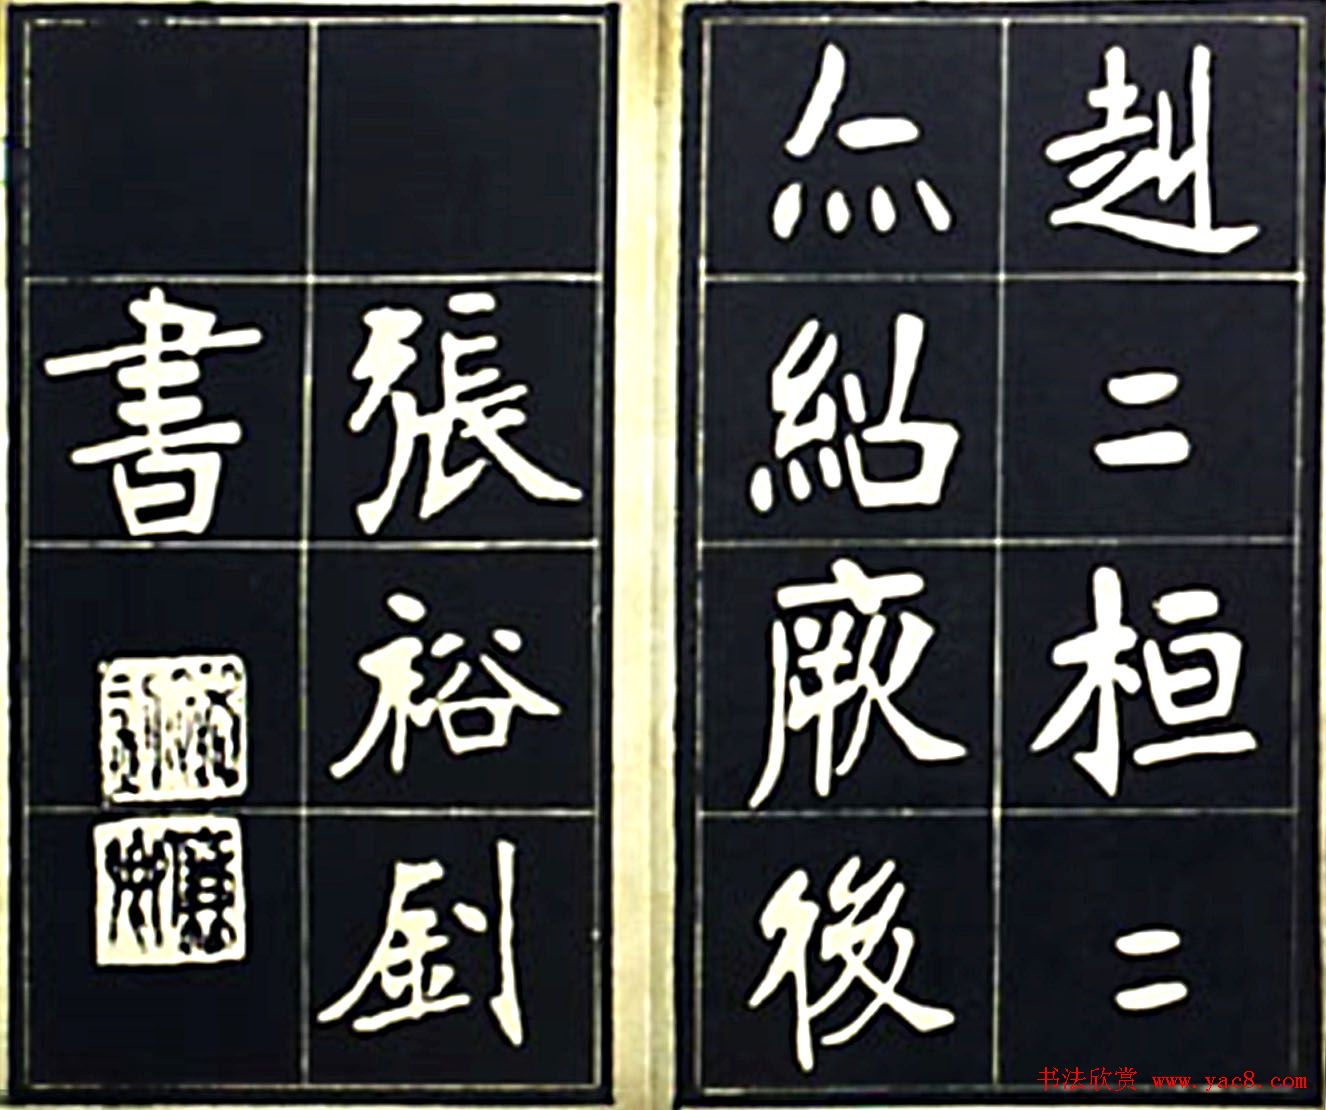 赳二桓二
亦紹厥後
張裕釗
書
书法欣赏 www.yac8.com